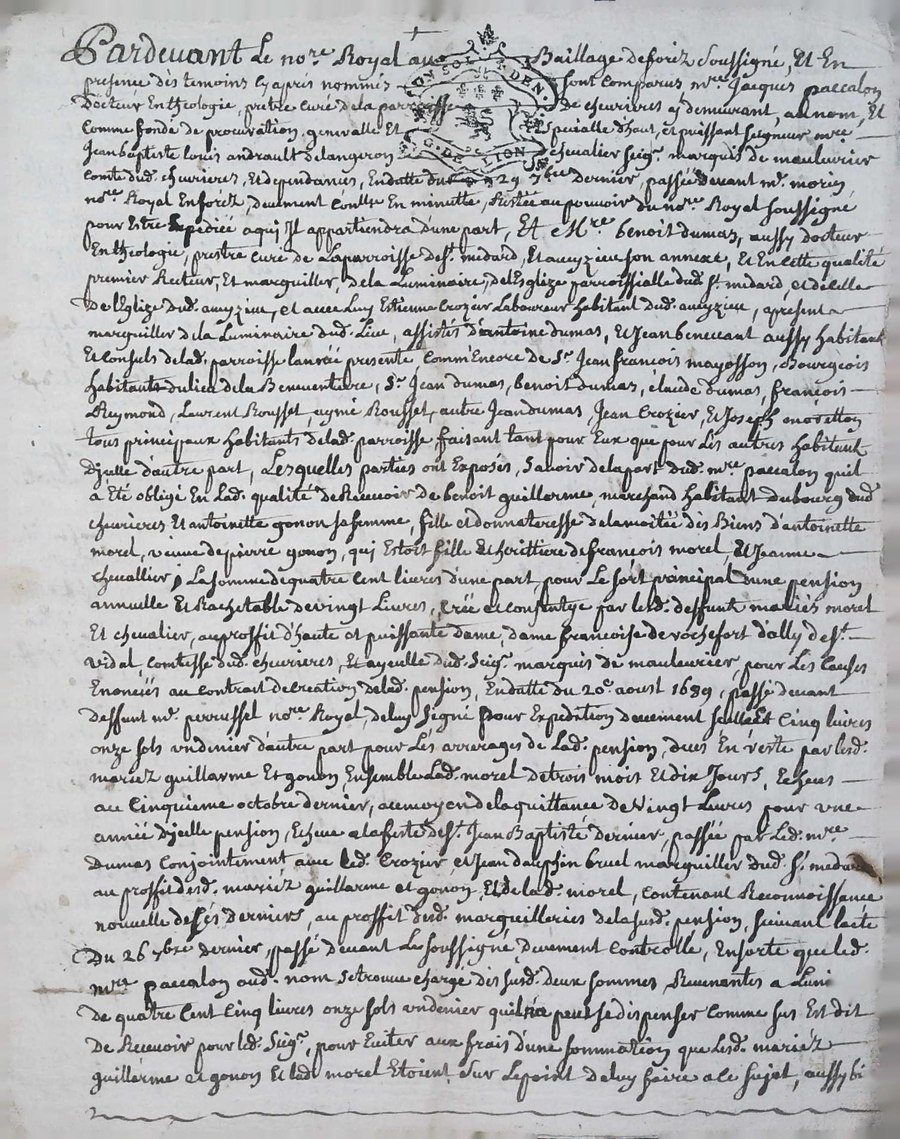 Pardevant Le no.re Royal au Baillage de forez Soussigné, Et En
presence des temoins cy apres nommés sont comparus m.re Jacques paccalon
Docteur En theologie, prebtre curé de la parroisse de chevrieres y demeurant, au nom, Et
Comme fondé de procuration generalle Et speciale d'haut, et puissant seigneur m.re
Jean baptiste Louis andrault de langeron chevalier seig.r marquis de maulevrier
Comte dud. chevrieres, Et dependances, En datte du 29 7bre Dernier, passée devant m.e
no.re Royal En forez, deuement Contllé En minutte, Restée au pouvoir du no.re Royal soussigné
pour Estre Expediée a qui Jl appartiendra d'une part, Et M.re benoit dumas, aussy docteur
En theologie, prestre curé de La parroisse de s.t midard, Et aveyzieu son annexe, Et En cette qualité
premier Recteur, Et marguiller de la Luminaire, de l'Esglize parroissialle dud. s.t midard, et de celle
De l'Eglize dud. aveyzieu, et avec Luy Estienne Crozier Laboureur habitant dud. aveyzieu, apresent
marguiller de la Luminaire dud. Lieu, assistés d'antoine dumas, Et Jean benevant aussy habitant
Et Consuls de lad. parroisse l'année presente, Comm'Encore de S.r Jean francois mayosson, Bourgeois
habitants du lieu de la Beneventure, S.r Jean dumas, benoit dumas, claude dumas, francois
Reymond, Laurent Rousset, aymé Rousset, autre Jean dumas, Jean Crozier, Et Joseph
tous principaux habitants de lad. parroisse, faisant tant pour Eux que pour Les autres habitants
Djcelle d'autre part, Lesquelles parties ont Exposés, Savoir de la part dud. m.re paccalon quil
a Eté obligé En Lad. qualité de Recevoir de benoit guillarme, marchand habitant du bourg dud.
chevrieres Et antoinette gonon sa femme, fille et donnateresse de la moitié des Biens d'antoinette
morel, veuve de pierre gonon, qui Estoit fille Et heritiere de francois morel, Et Jeanne
Chevallier; La somme de quatre Cent livres d'une part, pour Le sort principal d'une pension
annuelle Et Rachetable de vingt Livres, Créé et consentye par lesd. deffunt mariés morel
Et chevalier, au proffit d'haute et puissante dame, dame francoise de rochefort d'ally de s.t
vidal, Comtesse dud. chevrieres, Et ayeulle dud. Seig.r marquis de maulevrier, pour Les Causes
Enoncées au Contrat de creation de lad. pension, En datte du 20.e aoust 1689, passé devant
deffunt m.e perrussel no.re Royal, de luy Signé pour Expedition deuement scellé, Et Cinq livres
onze sols un denier d'autre part pour Les arrerages de Lad. pension, deues En reste par lesd.
mariez guillarme Et gonon, Ensemble Lad. morel de trois mois Et dix Jours, Echeus
au Cinquieme octobre dernier, au moyen de la quittance de Vingt Livres pour une
année djcelle pension, Echeue a la feste de s.t Jean Baptiste dernier, passée par Led. m.re
Dumas Conjointement avec led. Crozier et Jean dauphin bruel marguiller dud. s.t midard
au proffit desd. mariéz guillarme et gonon, Et de lad. morel, contenant Reconnoissance
nouvelle de ses derniers, au proffit desd. marguilleries de la susd. pension, suivant l'acte
Du 26 7bre dernier, passé devant Le soussigné, deuement Controllé, En sorte que led.
m.re paccalon aud. nom se trouve chargé des susd. deux sommes, Revenantes a Luni
de quatre Cent Cinq livres onze sols un denier quil n'a peut se dispenser Comme sus Est dit
De Recevoir pour led. Seig.r, pour Eviter aux frais d'une sommation que Lesd. mariéz
guillarme et gonon Et lad. morel Etoient Sur Le point de luy faire a ce Sujet, aussy bi